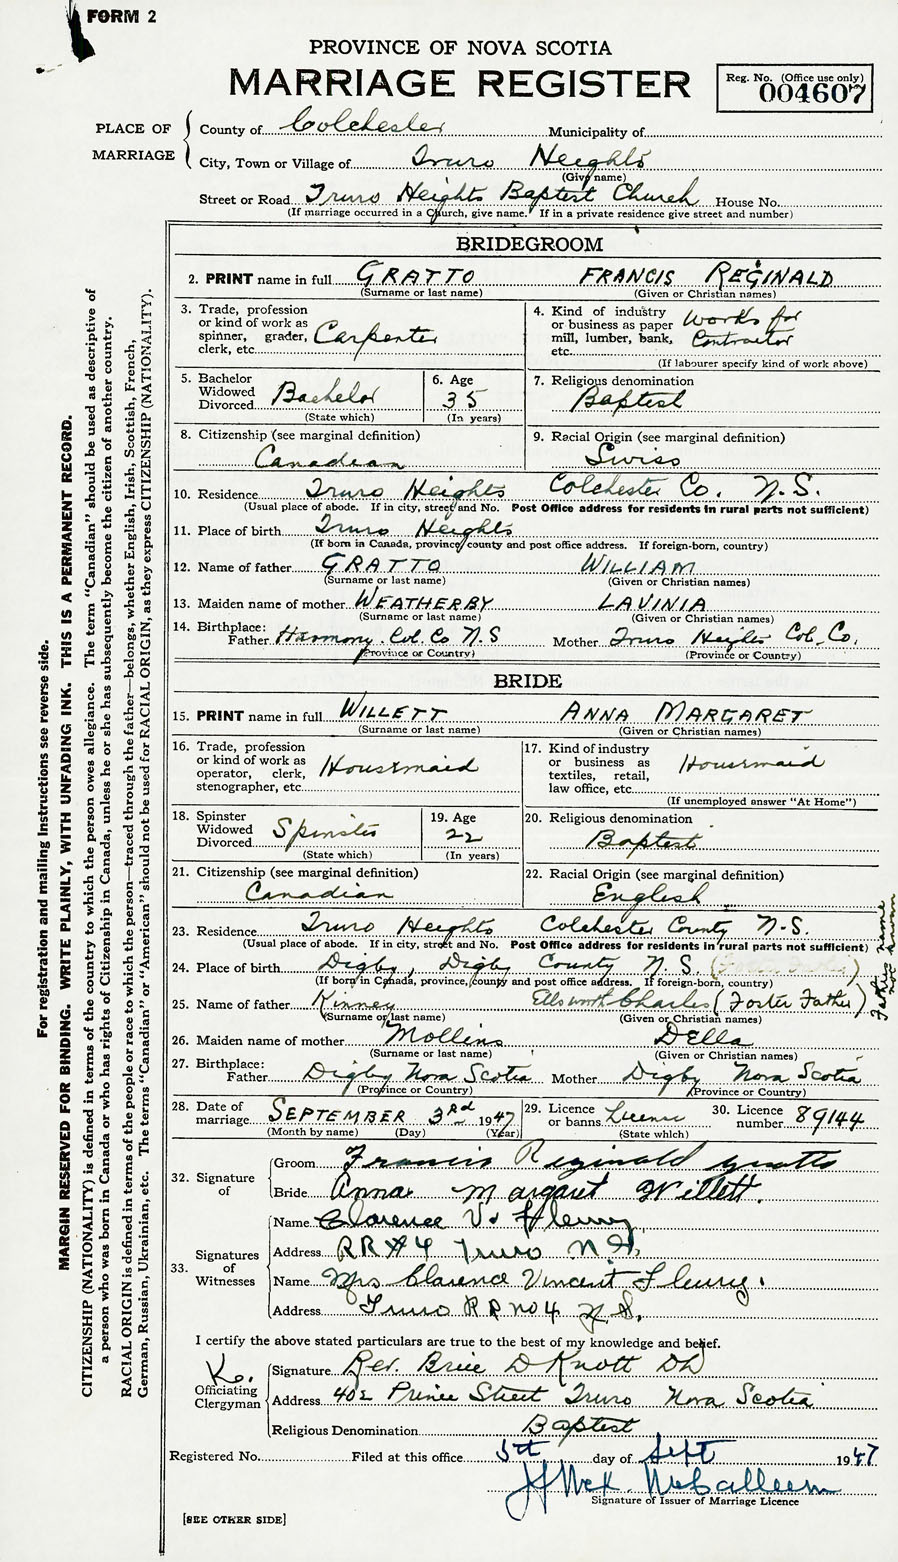 FORM 2
PROVINCE OF NOVA SCOTIA
MARRIAGE REGISTER
Reg. No. (Office use only)
004607
PLACE OF MARRIAGE
County of Colchester Municipality of
City, Town or Village of Truro Heights
(Give name)
Street or Road Truro Heights Baptist Church House No.
(If marriage occurred in a Church, give name. If in a private residence give street and number)
BRIDEGROOM
2. PRINT name in full GRATTO FRANCIS REGINALD
(Surname or last name) (Given or Christian names)
3. Trade, profession or kind of work as spinner, grader, clerk, etc. Carpenter
4. Kind of industry or business as paper mill, lumber, bank, etc. Works for Contractor
(If labourer specify kind of work above)
5. Bachelor Widowed Divorced Bachelor
(State which)
6. Age 35
(In years)
7. Religious denomination
Baptist
8. Citizenship (see marginal definition)
Canadian
9. Racial Origin (see marginal definition)
Swiss
10. Residence Truro Heights Colchester Co. N.S.
(Usual place of abode. If in city, street and No. Post Office address for residents in rural parts not sufficient)
11. Place of birth Truro Heights
(If born in Canada, province, county and post office address. If foreign-born, country)
12. Name of father GRATTO WILLIAM
(Surname or last name) (Given or Christian names)
13. Maiden name of mother WEATHERBY LAVINIA
(Surname or last name) (Given or Christian names)
14. Birthplace: Father Harmony. Col. Co N.S Mother Truro Heights Col. Co.
(Province or Country) (Province or Country)
BRIDE
15. PRINT name in full WILLETT ANNA MARGARET
(Surname or last name) (Given or Christian names)
16. Trade, profession or kind of work as operator, clerk, stenographer, etc. Housemaid
17. Kind of industry or business as textiles, retail, law office, etc. Housemaid
(If unemployed answer "At Home")
18. Spinster Widowed Divorced Spinster
(State which)
19. Age 22
(In years)
20. Religious denomination
Baptist
21. Citizenship (see marginal definition)
Canadian
22. Racial Origin (see marginal definition)
English
23. Residence Truro Heights Colchester County N.S.
(Usual place of abode. If in city, street and No. Post Office address for residents in rural parts not sufficient)
24. Place of birth Digby, Digby County N.S. (Foster Father)
(If born in Canada, province, county and post office address. If foreign-born, country)
25. Name of father Kinney Ellsworth Charles (Foster Father)
(Surname or last name) (Given or Christian names)
Father's name not known
26. Maiden name of mother Mollins Della
(Surname or last name) (Given or Christian names)
27. Birthplace: Father Digby Nova Scotia Mother Digby Nova Scotia
(Province or Country) (Province or Country)
28. Date of marriage SEPTEMBER 3rd 1947
(Month by name) (Day) (Year)
29. Licence or banns License
(State which)
30. Licence number 89144
32. Signature of
Groom Francis Reginald Gratto
Bride Anna Margaret Willett.
33. Signatures of Witnesses
Name Clarence V. Fleury
Address RR #4 Truro N.S.
Name Mrs Clarence Vincent Fleury.
Address Truro RR no 4 N.S.
I certify the above stated particulars are true to the best of my knowledge and belief.
K.
Officiating Clergyman
Signature Rev. Brice D Knott
Address 402 Prince Street Truro Nova Scotia
Religious Denomination Baptist
Registered No. Filed at this office 5th day of Sept 1947
Signature of Issuer of Marriage Licence
[SEE OTHER SIDE]
For registration and mailing instructions see reverse side.
MARGIN RESERVED FOR BINDING. WRITE PLAINLY, WITH UNFADING INK. THIS IS A PERMANENT RECORD.
CITIZENSHIP (NATIONALITY) is defined in terms of the country to which the person owes allegiance. The term "Canadian" should be used as descriptive of
a person who was born in Canada or who has rights of Citizenship in Canada, unless he or she has subsequently become the citizen of another country.
RACIAL ORIGIN is defined in terms of the people or race to which the person—traced through the father—belongs, whether English, Irish, Scottish, French,
German, Russian, Ukrainian, etc. The terms "Canadian" or "American" should not be used for RACIAL ORIGIN, as they express CITIZENSHIP (NATIONALITY).